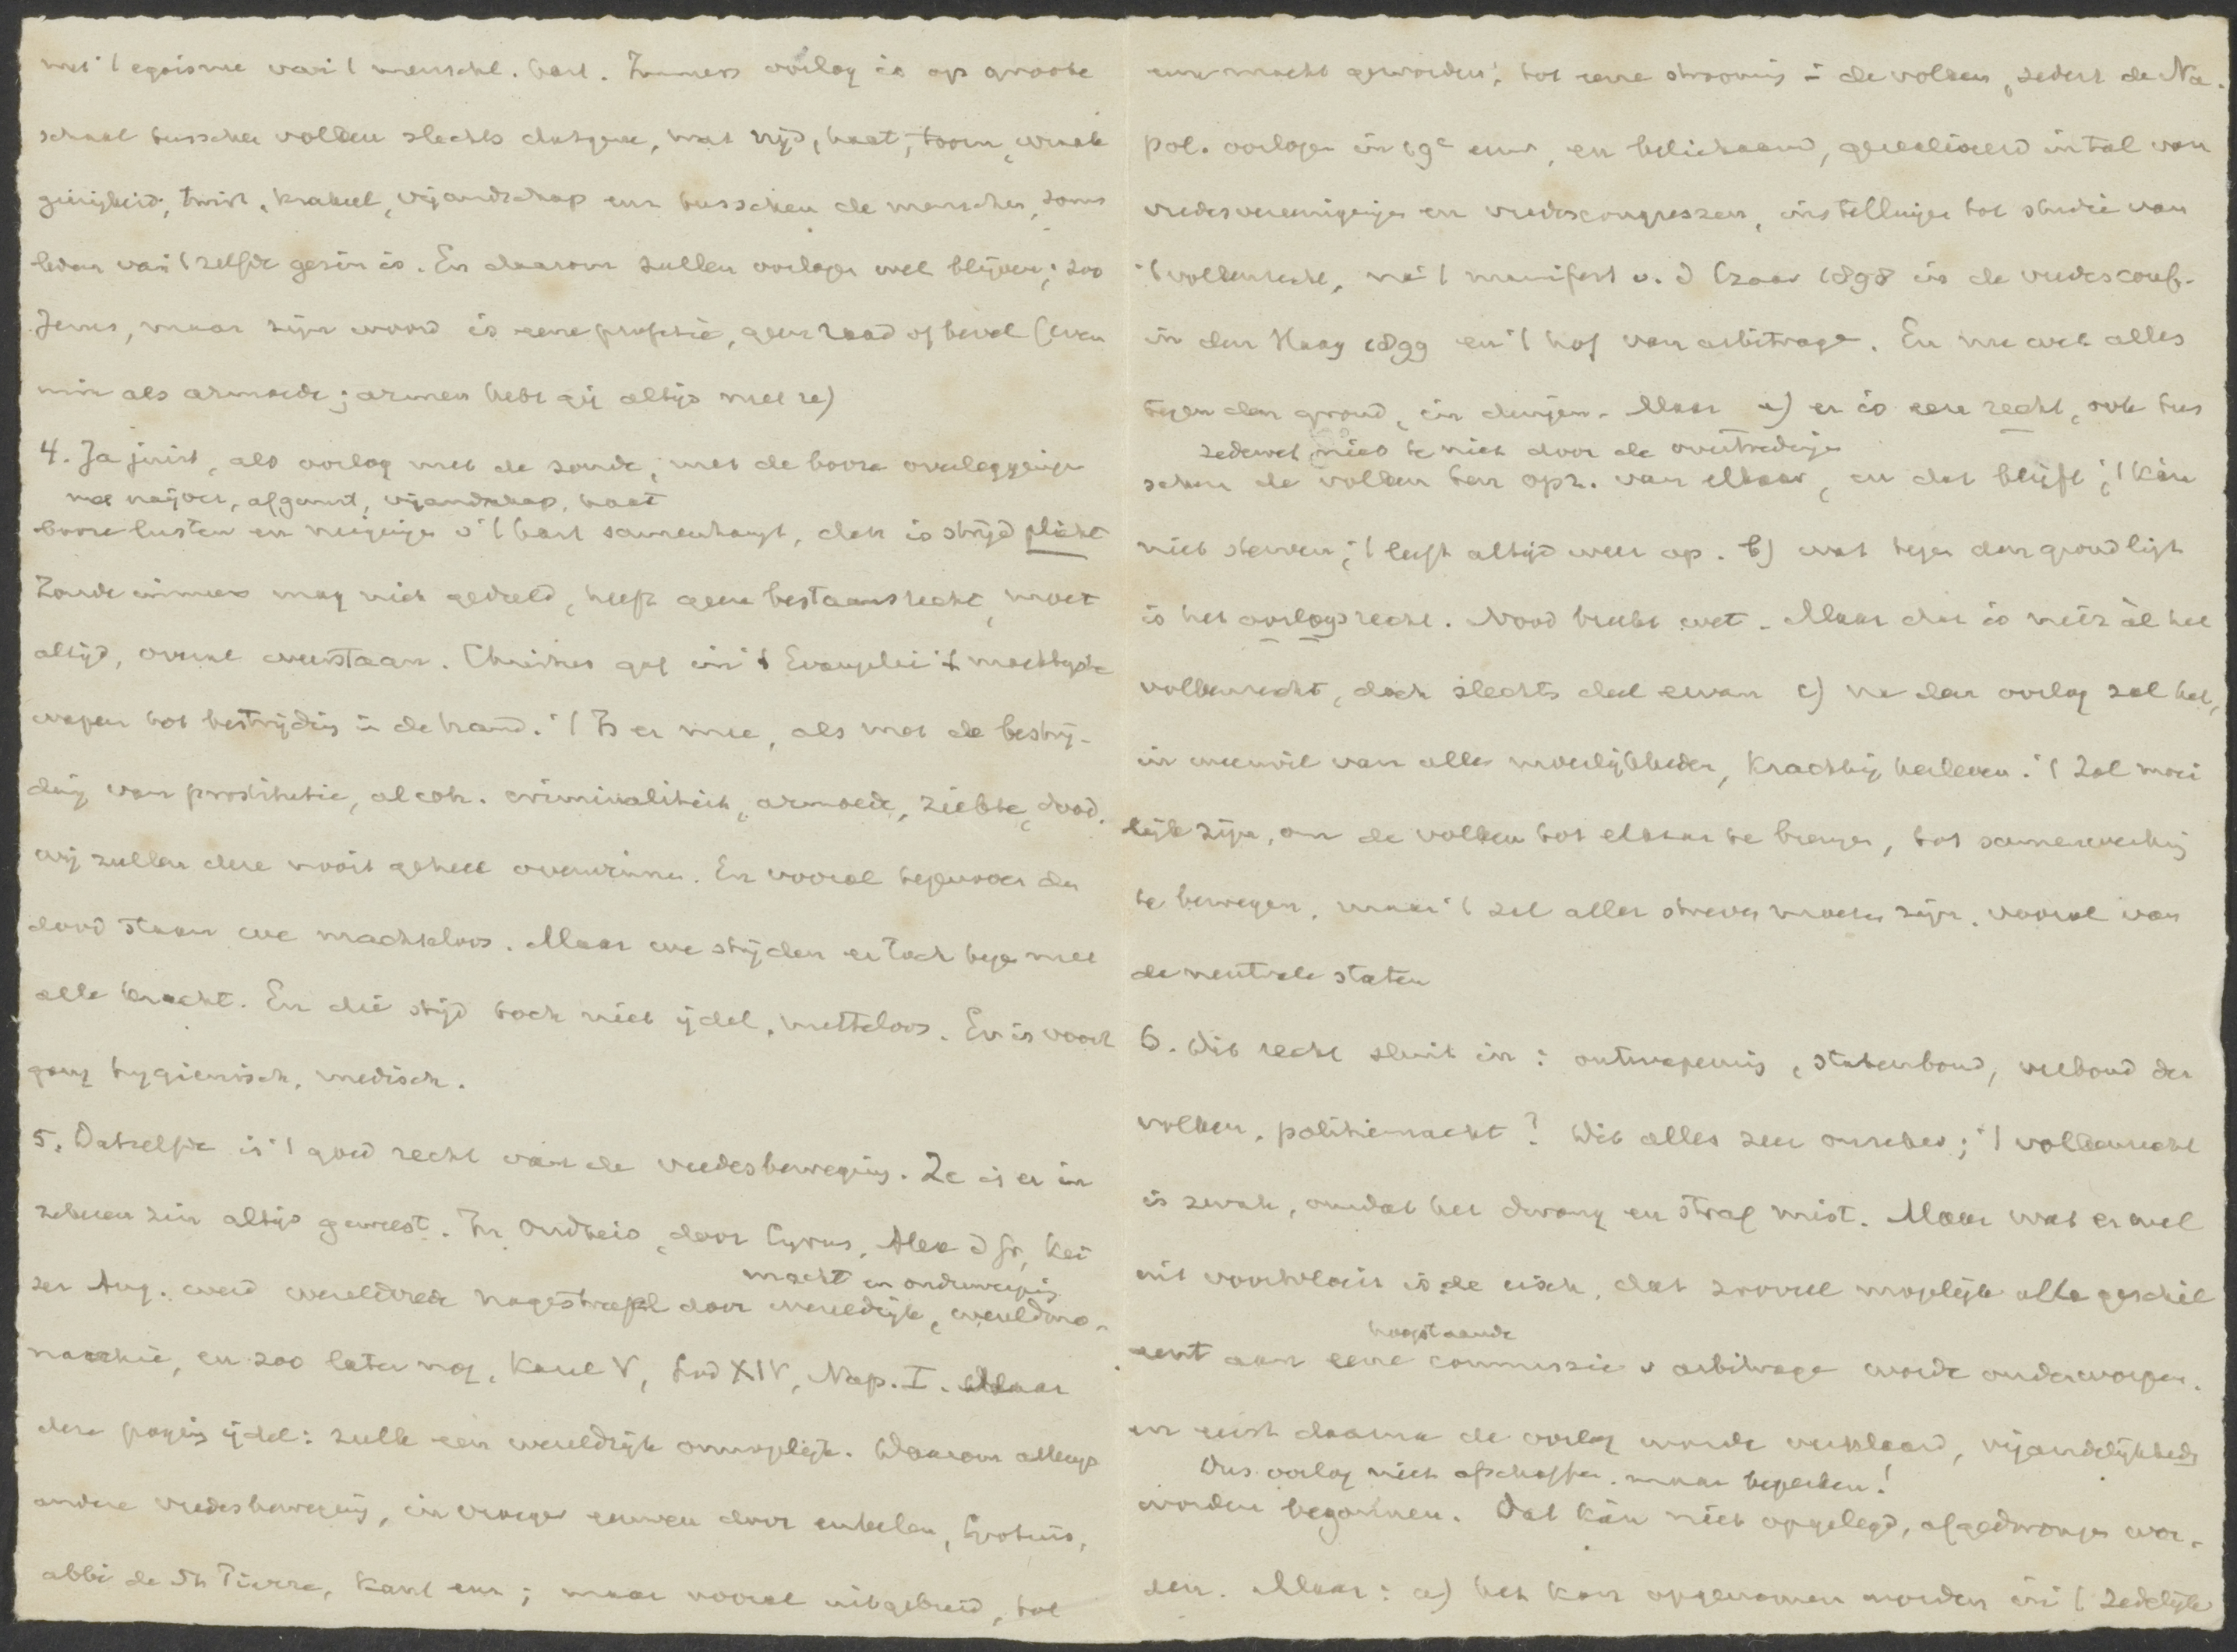 met 't egoisme van 't menschel. hart. Immers oorlog is op groote
schaal tusschen volken slechts datgene, wat nijd, haat, toorn, wraak
gierigheid, twist, krakeel, vijandschap enz tusschen de menschen, soms
leden van 't zelfde gezin is. En daarom zullen oorlogen wel blijven; zoo
Jezus, maar zijn woord is eene profetie, geen raad of bevel (even
min als armoede; armen hebt gij altijd met u)
4. Ja juist, als oorlog met de zonde, met de booze overleggingen
met naijver, afgunst, vijandschap, haat
booze lusten en neigingen v 't hart samenhangt, dan is strijd plicht
Zonde immers mag niet geduld, heeft geen bestaansrecht, moet
altijd, overal weerstaan. Christus gaf in 't Evangelie 't machtigste
wapen tot bestrijding in de hand. 't Is er mee, als met de bestrij-
ding van prostitutie, alcoh. criminaliteit, armoede, ziekte, dood.
wij zullen deze nooit geheel overwinnen. En vooral tegenover den
dood staan we machteloos. Maar we strijden er toch tegen met
alle kracht. En die strijd toch niet ijdel, nutteloos. Er is vooruit
gang hygienisch, medisch.
5. Datzelfde is 't goed recht van de vredesbeweging. Ze is er in
zekeren zin altijd geweest. In Oudheid, door Cyrus, Alex d Gr, Kei
macht en onderwerping
zer Aug. werd wereldvrede nagestreefd door wereldrijk, wereldmo-
narchie, en zoo later nog, Karel V, Lod XIV, Nap. I. Maar
deze poging ijdel: zulk een wereldrijk onmogelijk. Daarom allengs
andere vredesbeweging, in vroeger eeuwen door enkelen, Grotius,
abbé de St Pierre, Kant enz; maar vooral uitgebreid, tot
eene macht geworden, tot eene strooming in de volken, sedert de Na-
pol. oorlogen in 19e eeuw, en belichaamd, gerealiseerd in tal van
vredesvereenigingen en vredescongressen, instellingen tot studie van
't volkenrecht, na 't manifest v. d Czaar 1898 in de vredesconf.
in den Haag 1899 en 't hof van arbitrage. En nu ook alles
tegen den grond, in duigen. Maar a) er is eene recht, ook tus
zedewet niet te niet door de overtredingen
schen de volken ten opz. van elkaar, en dat blijft; 't kan
niet sterven; 't leeft altijd weer op. b) wat tegen den grond ligt
is het oorlogsrecht. Nood breekt wet. Maar dat is niet àl het
volkenrecht, doch slechts deel ervan c) na den oorlog zal het,
in weerwil van alle moeilijkheden, krachtig herleven. 't Zal moei
lijk zijn, om de volken tot elkaar te brengen, tot samenwerking
te bewegen, maar 't zal aller streven moeten zijn, vooral van
de neutrale staten
6. Dit recht sluit in: ontwapening, statenbond, verbond der
volken, politiemacht? Dit alles zeer onzeker; 't volkenrecht
is zwak, omdat het dwang en straf mist. Maar wat er wel
uit voortvloeit is de eisch, dat zooveel mogelijk alle geschil
hoogstaande
eerst aan eene commissie v arbitrage worde onderworpen.
en eerst daarna de oorlog worde verklaard, vijandelijkheden
Dus oorlog niet afschaffen, maar beperken!
worden begonnen. Dat kàn niet opgelegd, afgedwongen wor-
den. Maar: a) het kan opgenomen worden in 't zedelijk